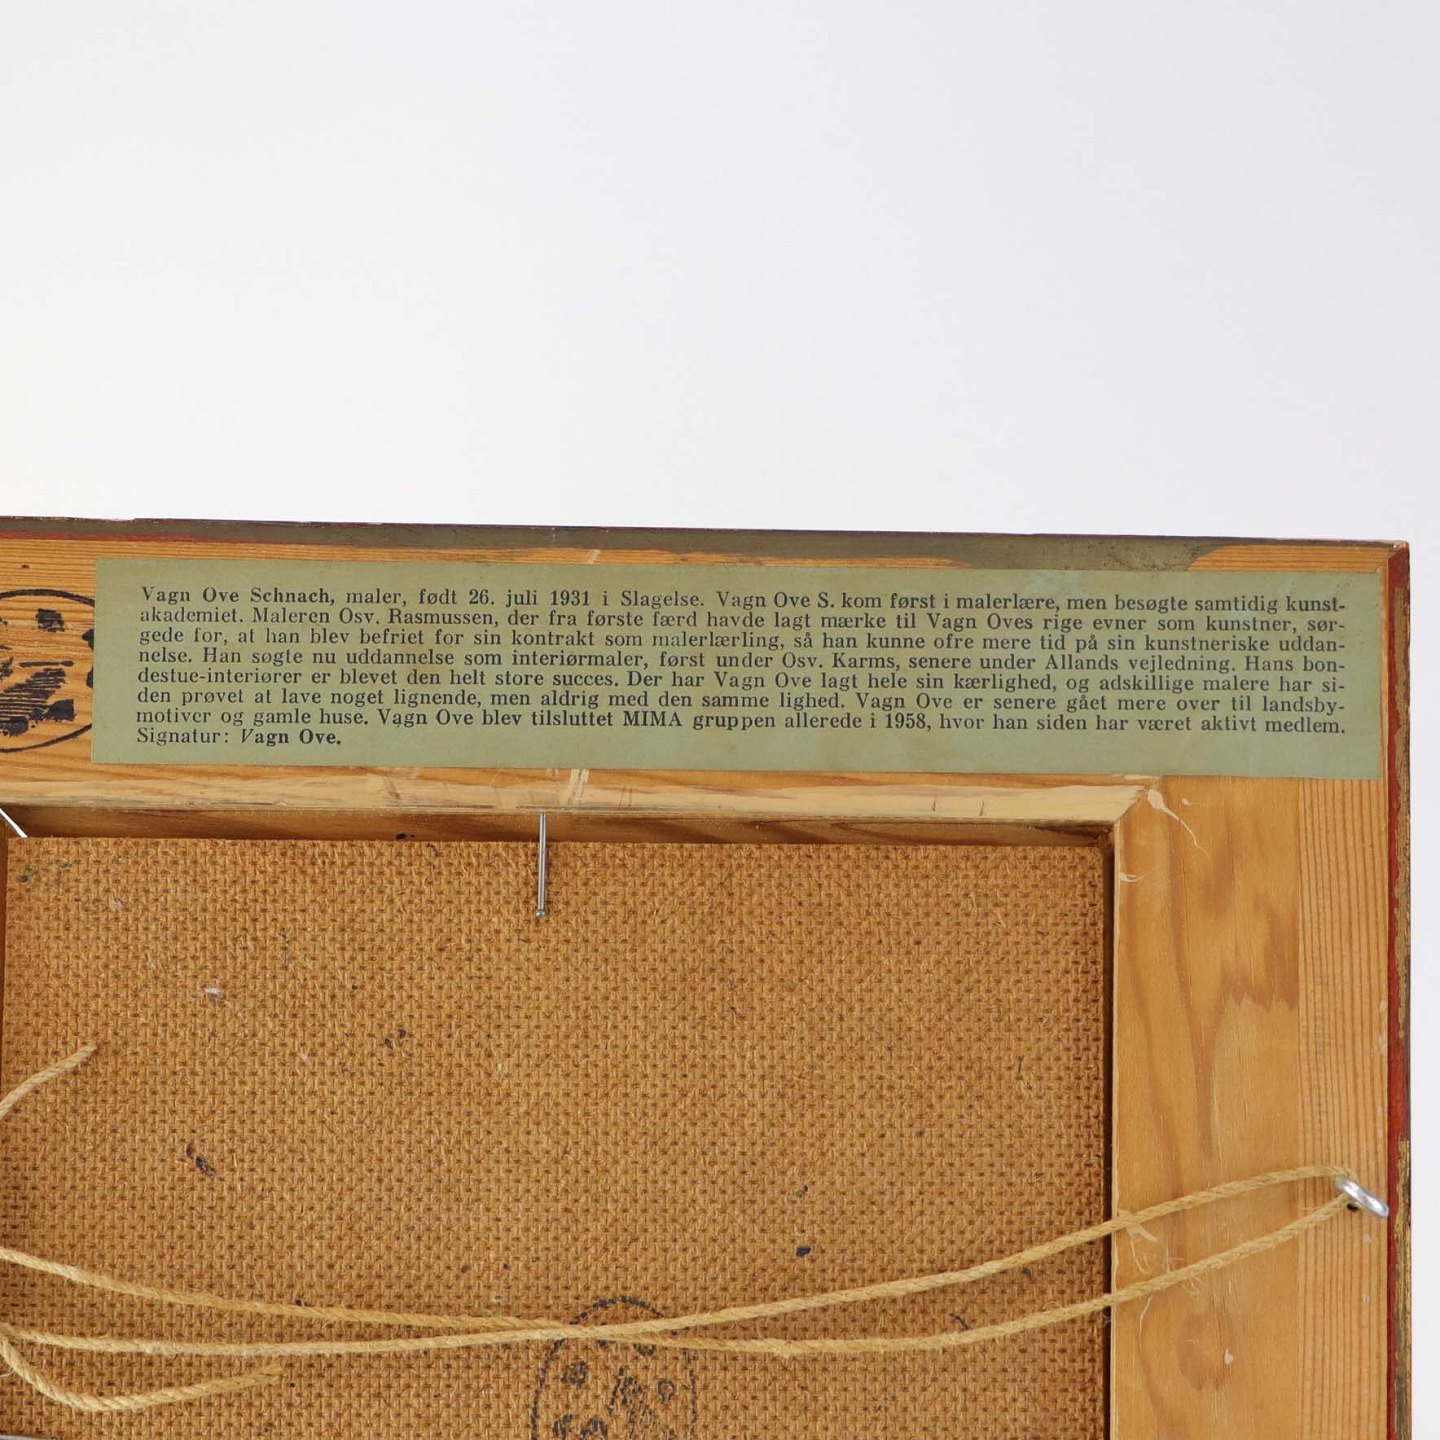 Vagn Ove Schnach, maler, født 26. juli 1931 i Slagelse. Vagn Ove S. kom først i malerlære, men besøgte samtidig kunst-
akademiet. Maleren Osv. Rasmussen, der fra første færd havde lagt mærke til Vagn Oves rige evner som kunstner, sør-
gede for, at han blev befriet for sin kontrakt som malerlærling, så han kunne ofre mere tid på sin kunstneriske uddan-
nelse. Han søgte nu uddannelse som interiørmaler, først under Osv. Karms, senere under Allands vejledning. Hans bon-
destue-interiører er blevet den helt store succes. Der har Vagn Ove lagt hele sin kærlighed, og adskillige malere har si-
den prøvet at lave noget lignende, men aldrig med den samme lighed. Vagn Ove er senere gået mere over til landsby-
motiver og gamle huse. Vagn Ove blev tilsluttet MIMA gruppen allerede i 1958, hvor han siden har været aktivt medlem.
Signatur: Vagn Ove.